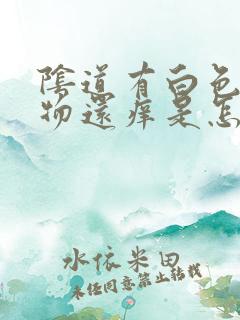 陰道有白色
物還痒是怎
水依米田
未经同意禁止转载